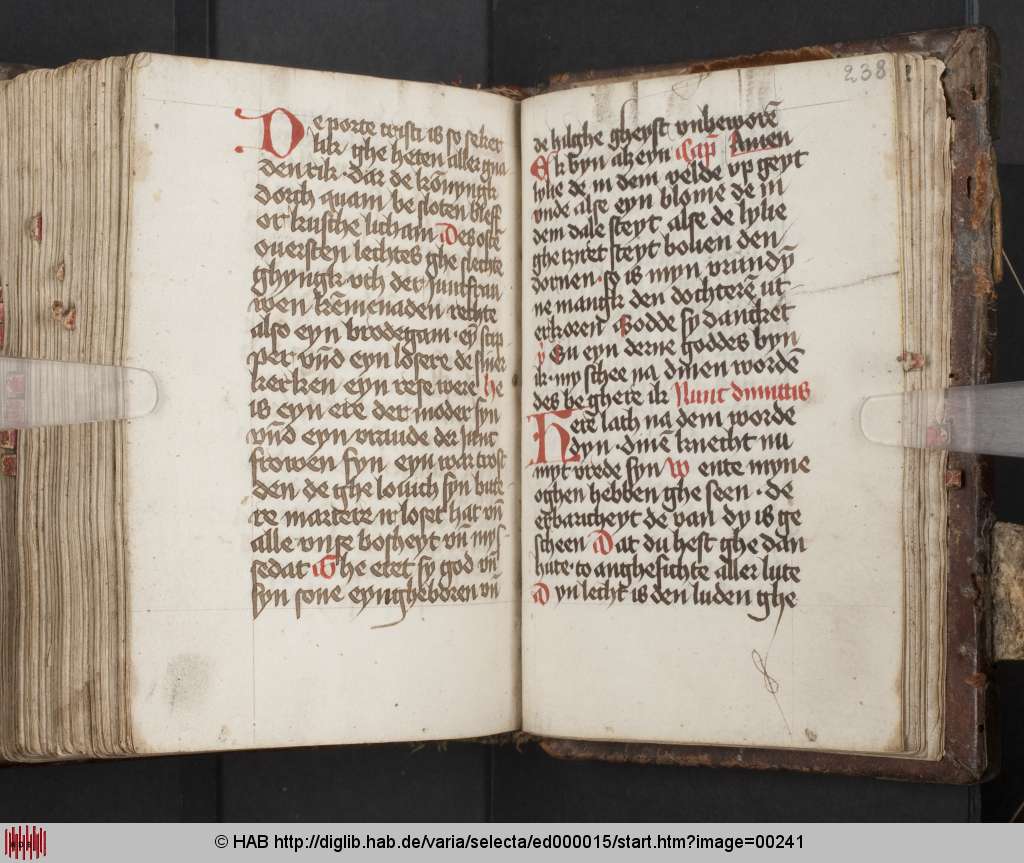 De porte cristi is so seker
lik ghe heten aller gna
den rik · dar de kōnyngk
dorch quam / be sloten bleff
or kusche licham Des oste
ouersten lechtes ghe slechte
ghyngk vth der Juncfrau
wen kēmenaden rechte
alse eyn brodegam · eyn
per vn̄d eyn losere de syner
kerken eyn rese were He
is eyn ere der moder syn
vn̄d eyn vraude der Junc
frowen syn eyn war trost
den de ghe louich syn bitte
re martere vn̄
alle vnse bosheyt vn̄ mys-
sedat Ghe eret sy god vn̄
syn sone eynghebōren vn̄
238
de hilghe gheyst vnbeworē
Ek byn alz eyn Cap̄ Amen
lylie de in dem velde vp geyt
vnde alse eyn blome de in
dem dale steyt alse de lylie
steyt bouen den
dornen · so is myn vrundȳ
ne mangk den dochterē ut
erkoren Godde sy dancket
En eyn derne goddes byn
ik · my schee na dinen wordē
des be ghere ik Nunc dimittis
Herē lath na dem worde
dyn · dinē knecht nu
myt vrede syn Wente myne
oghen hebben ghe seen · de
erbaricheyt de van dy is ge
scheen Dat du hest ghe dan
hute · to anghesichte aller lute
Dyn lecht is den luden ghe
© HAB http://diglib.hab.de/varia/selecta/ed000015/start.htm?image=00241